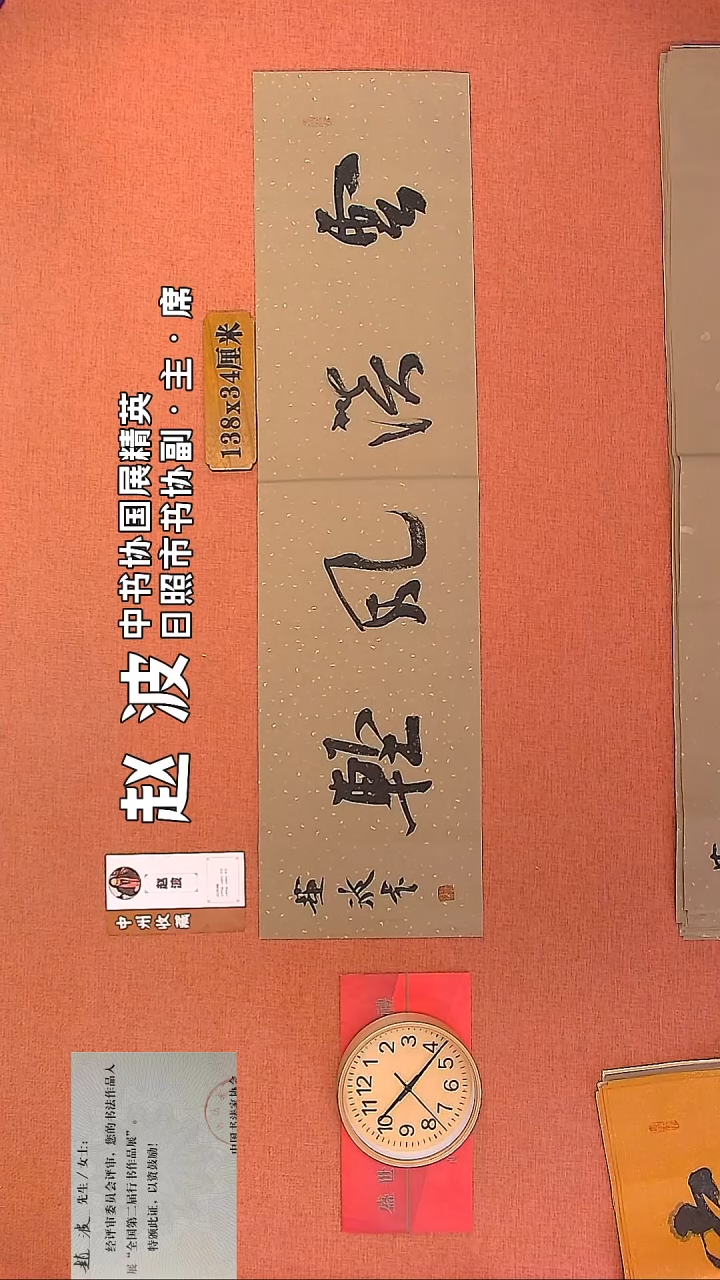 赵波
中书协国展精英
日照市书协副·主·席
138x34厘米
中州收藏
赵波
雲淡風輕
趙波书
趙波 先生/女士:
经评审委员会评审，您的书法作品入
展“全国第二届行书作品展”。
特颁此证，以资鼓励!
中国书法家协会
盛世
12
1
2
3
4
5
6
7
8
9
10
11